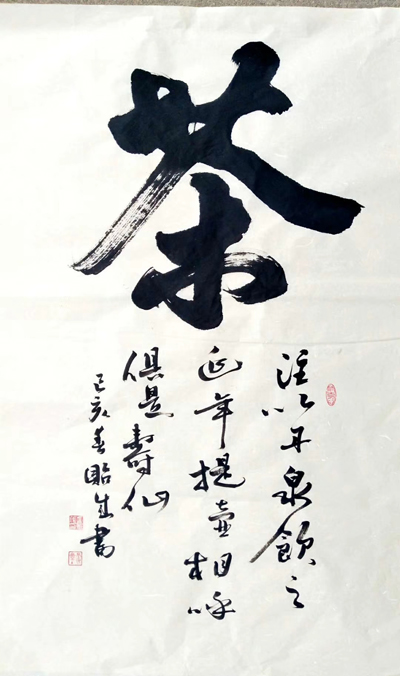 茶
注以丹泉飲之
延年提壶相呼
俱是壽仙
己亥春昭生書